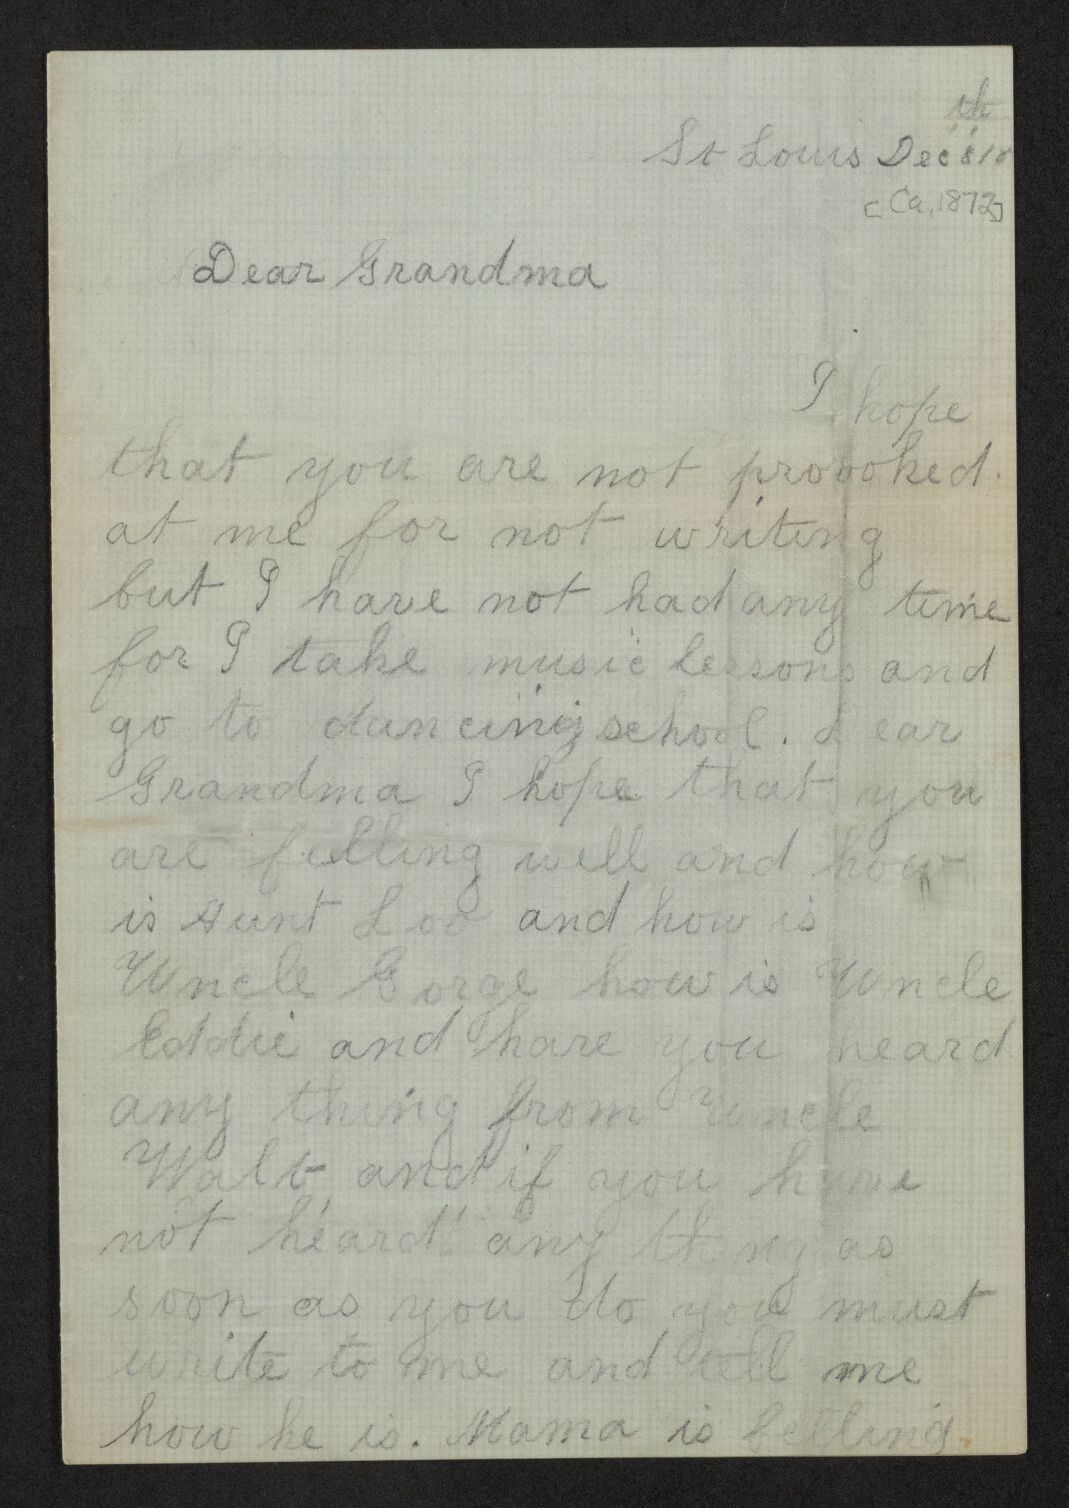 th
St Louis Dec 8 18
[Ca. 1872]
Dear Grandma
I hope
that you are not provoked.
at me for not writing
but I have not had any time
for I take music lessons and
go to dancing school. Dear
Grandma I hope that you
are felling well and how
is Aunt Loo and how is
Uncle Gorge how is Uncle
Eddie and have you heard
any thing from Uncle
Walt and if you have
not heard any thing as
soon as you do you must
write to me and tell me
how he is. Mama is